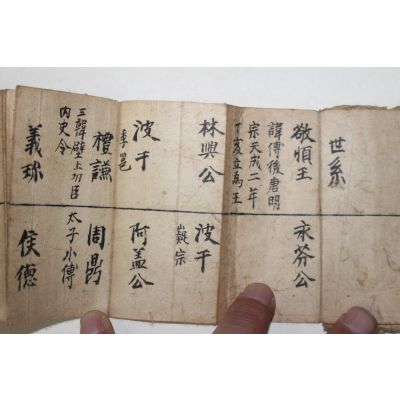 世系
敬順王
諱傅後唐明
宗天成二年
丁亥立為王
永芬公
林興公
波干
嶷宗
波干
季邕
阿盖公
禮謙
三韓壁上功臣
內史令
周鼎
太子小傅
義珎
侯德